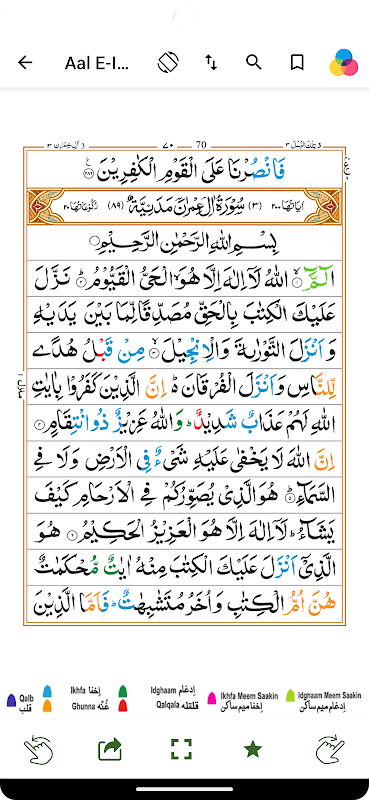 Aal E-I...
٣ اٰل عمرٰن ٣ ٧٠ 70 تلك الرسل ٣
فَانْصُرْنَا عَلَى الْقَوْمِ الْكٰفِرِيْنَ ﴿٢٨٦﴾
اٰيَاتُهَا ٢٠٠ (٣) سُوْرَةُ اٰلِ عِمْرٰنَ مَدَنِيَّةٌ (٨٩) رُكُوْعَاتُهَا ٢٠
بِسْمِ اللّٰهِ الرَّحْمٰنِ الرَّحِيْمِ
الٓمَّٓ ۙ﴿١﴾ اللّٰهُ لَاۤ اِلٰهَ اِلَّا هُوَ ۙ الْحَىُّ الْقَيُّوْمُ ؕ﴿٢﴾ نَزَّلَ
عَلَيْكَ الْكِتٰبَ بِالْحَقِّ مُصَدِّقًا لِّمَا بَيْنَ يَدَيْهِ
وَاَنْزَلَ التَّوْرٰىةَ وَالْاِنْجِيْلَ ۙ﴿٣﴾ مِنْ قَبْلُ هُدًى
لِّلنَّاسِ وَاَنْزَلَ الْفُرْقَانَ ؕ۬ اِنَّ الَّذِيْنَ كَفَرُوْا بِاٰيٰتِ
اللّٰهِ لَهُمْ عَذَابٌ شَدِيْدٌ ؕ وَاللّٰهُ عَزِيْزٌ ذُو انْتِقَامٍ ﴿٤﴾
اِنَّ اللّٰهَ لَا يَخْفٰى عَلَيْهِ شَىْءٌ فِى الْاَرْضِ وَلَا فِى
السَّمَآءِ ؕ﴿٥﴾ هُوَ الَّذِىْ يُصَوِّرُكُمْ فِى الْاَرْحَامِ كَيْفَ
يَشَآءُ ؕ لَاۤ اِلٰهَ اِلَّا هُوَ الْعَزِيْزُ الْحَكِيْمُ ﴿٦﴾ هُوَ
الَّذِىْۤ اَنْزَلَ عَلَيْكَ الْكِتٰبَ مِنْهُ اٰيٰتٌ مُّحْكَمٰتٌ
هُنَّ اُمُّ الْكِتٰبِ وَاُخَرُ مُتَشٰبِهٰتٌ ؕ فَاَمَّا الَّذِيْنَ
Qalb قلب
Ikhfa اِخفا
Ghunna غُنّه
Idghaam اِدغام
Qalqala قلقله
Ikhfa Meem Saakin اِخفا ميم ساكن
Idghaam Meem Saakin اِدغام ميم ساكن